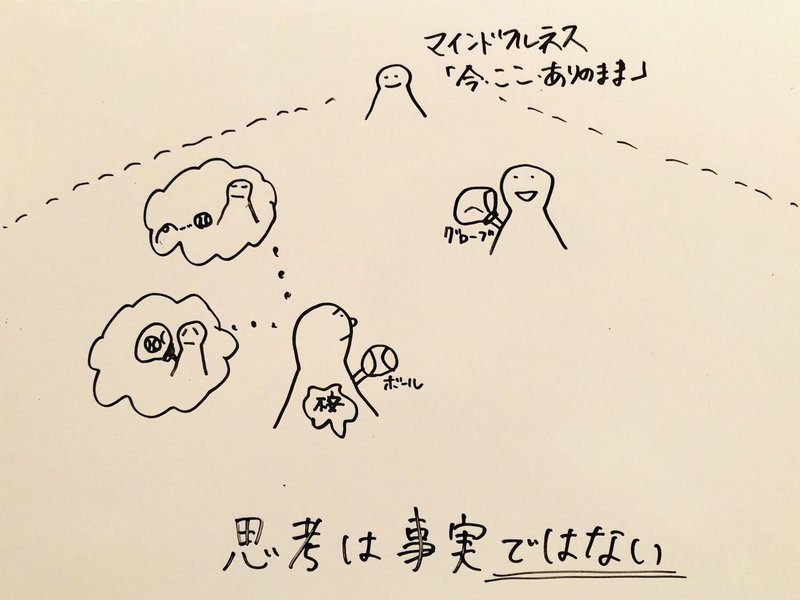 マインドフルネス
「今・ここ・ありのまま」
グローブ
ボール
不安
思考は事実ではない